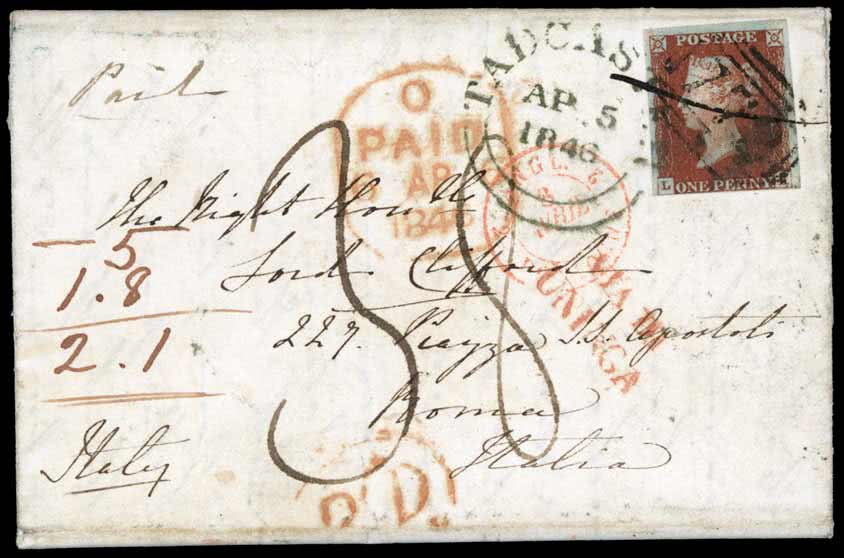 Paid
TADCAS
AP 5
1846
POSTAGE
L
ONE PENNY
O
PAID
AP
1846
The Right Honble
Lord Clifford
227. Piazza S.S. Apostoli
Roma
Italia
5
1.8
2.1
Italy
38
VIA DI
P.D.